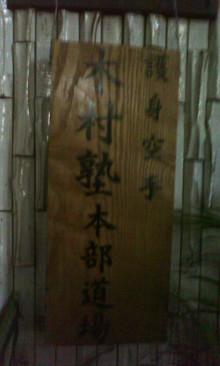 護身空手
木村塾本部道場